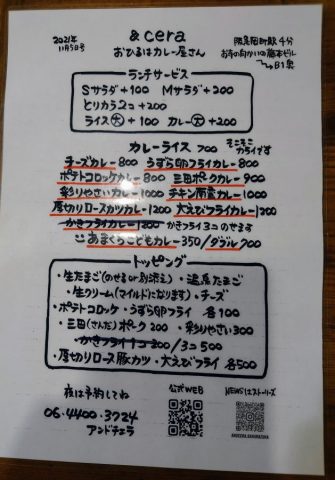 2021年
11月5日号
&cera
おひるはカレー屋さん
阪急岡町駅4分
お寺の向かいの藤本ビル
→B1奥
ランチサービス
Sサラダ+100 Mサラダ+200
とりカラ2コ+200
ライス大+100 カレー大+200
カレーライス 700 そこそこカライです
チーズカレー800 うずら卵フライカレー800
ポテトコロッケカレー800 三田ポークカレー900
彩りやさいカレー1000 チキン南蛮カレー1000
厚切りロースカツカレー1200 大えびフライカレー1200
かきフライカレー1200 かきフライ3コのせます
あまくちこどもカレー350/ダブル700
トッピング
・生たまご(のせるor別添え)・温泉たまご
・生クリーム(マイルドになります)・チーズ
・ポテトコロッケ・うずら卵フライ 各100
・三田(さんだ)ポーク200・彩りやさい300
・かきフライ1コ200/3コ500
・厚切りロース豚カツ・大えびフライ 各500
夜は予約してね
06-4400-3724
アンドチェラ
公式WEB
NEWSはストーリーズ